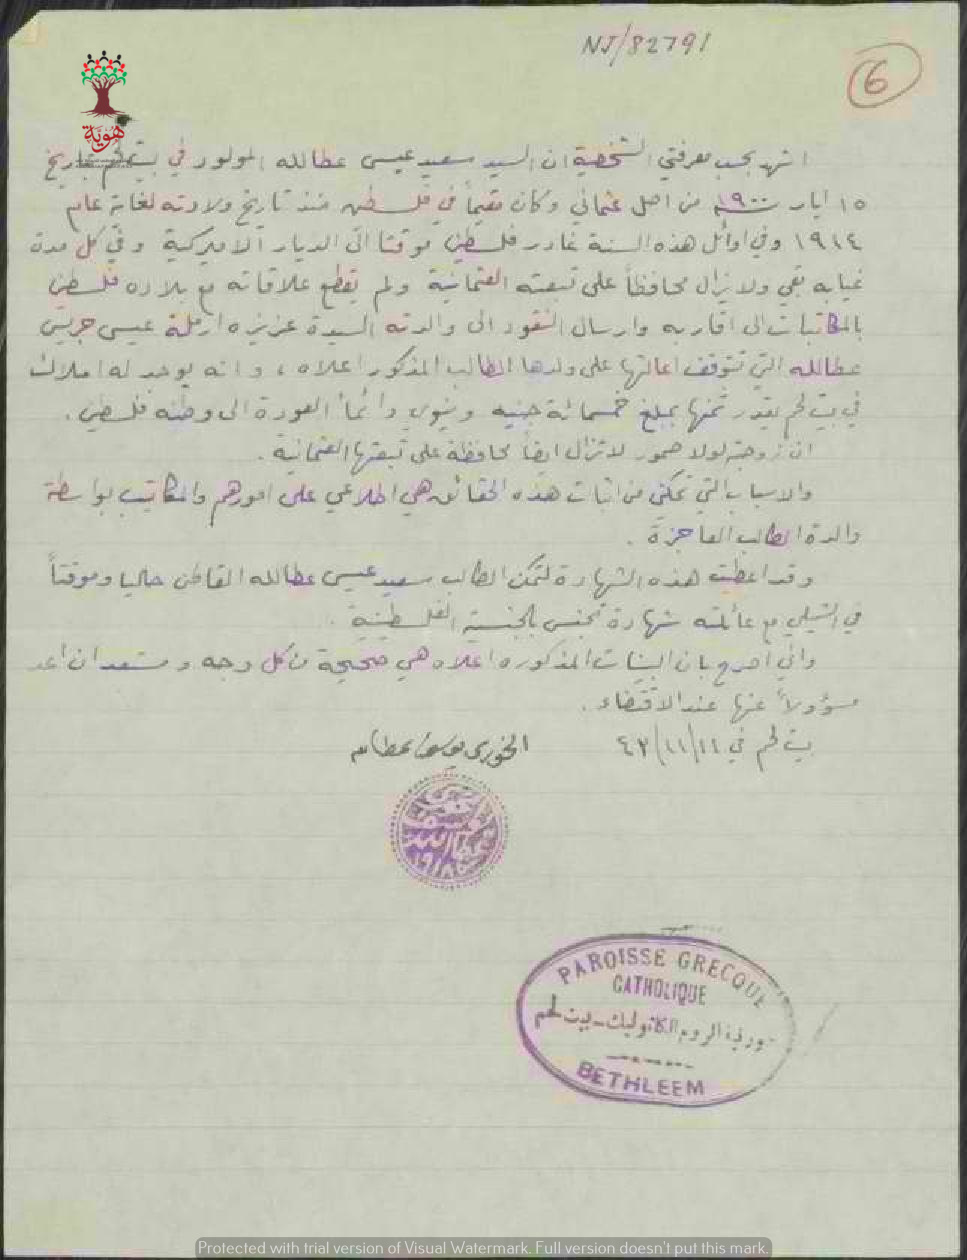 NJ/82791
6
هوية
اشهد بحسب معرفتي الشخصية ان السيد سعيد عيسى عطالله المولود في بيت لحم بتاريخ
١٥ ايار سنة ١٩٠٠ من اصل عثماني وكان مقيماً في فلسطين منذ تاريخ ولادته لغاية عام
١٩١٤ وفي اوائل هذه السنة غادر فلسطين موقتا الى الديار الاميركية وفي كل مدة
غيابه بقي ولا يزال محافظاً على تبعته العثمانية ولم يقطع علاقاته مع بلاده فلسطين
بالمكاتبات الى اقاربه وارسال النقود الى والدته السيدة عزيزه ارملة عيسى جريس
عطالله التي تتوقف اعالتها على ولدها الطالب المذكور اعلاه ، وانه يوجد له املاك
في بيت لحم يقدر ثمنها بمبلغ خمسمائة جنيه وينوي دائماً العودة الى وطنه فلسطين .
ان زوجته لولا صمور لا تزال ايضاً محافظة على تبعتها العثمانية .
والاسباب التي تمكني من اثبات هذه الحقائق هي اطلاعي على امورهم والمكاتيب بواسطة
والدة الطالب العاجزة .
وقد اعطيت هذه الشهادة لتمكن الطالب سعيد عيسى عطالله القاطن حاليا وموقتاً
في التشيلي مع عائلته شهادة تجنس بالجنسية الفلسطينية .
واني اصرح بان البينات المذكوره اعلاه هي صحيحة من كل وجه ومستعد ان اعد
مسؤولاً عنها عند الاقتضاء .
بيت لحم في ١١/١١/٤٣
الخوري عطالله
PAROISSE GRECQUE
CATHOLIQUE
الروم الكاثوليك - بيت لحم
BETHLEEM
Protected with trial version of Visual Watermark. Full version doesn't put this mark.